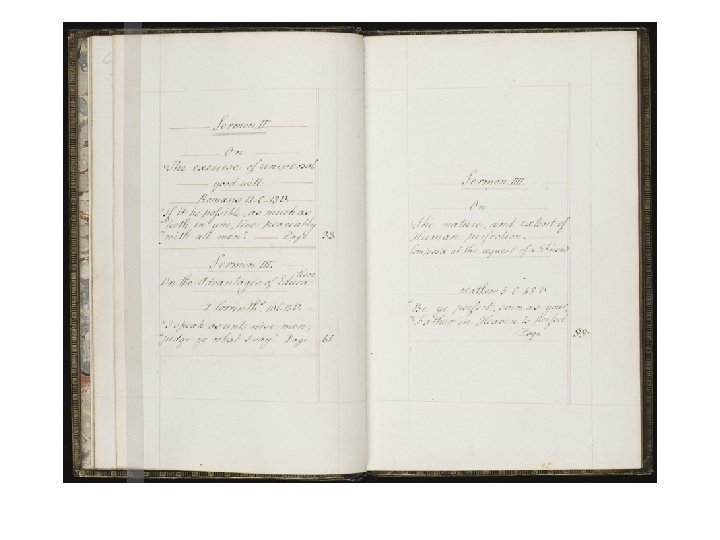 Sermon II.
On
The exercise of universal
good will
Romans 12. C. 18. V.
"If it be possible, as much as
"lieth in you, live peaceably
"with all men". Page 33.
Sermon III.
On the Advantages of Educa-
tion
I Corinth.s 10. C. 15. V.
"I speak as unto wise men,
"judge ye what I say." Page 61
Sermon IIII.
On
The nature, and extent of
Human perfection.
Composed at the request of a Friend
Mathew 5. C. 48. V.
"Be ye perfect, even as your
"Father in Heaven is Perfect"
Page 89.